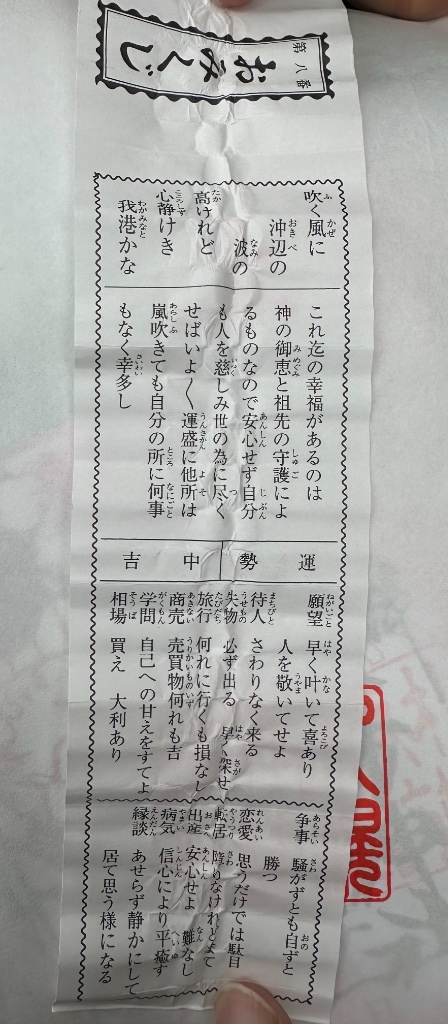 第八番
おみくじ
吹く風に
沖辺の
波の
高けれど
心静けき
我港かな
これ迄の幸福があるのは
神の御恵と祖先の守護によ
るものなので安心せず自分
も人を慈しみ世の為に尽く
せばいよ〱運盛に他所は
嵐吹きても自分の所に何事
もなく幸多し
運勢 中吉
願望 早く叶いて喜あり
人を敬いてせよ
待人 さわりなく来る
失物 必ず出る 早く探せ
旅行 何れに行くも損なし
商売 売買物何れも吉
学問 自己への甘えをすてよ
相場 買え 大利あり
争事 騒がずとも自ずと
勝つ
恋愛 思うだけでは駄目
転居 障りなけれどまて
出産 安心せよ 難なし
病気 信心により平癒す
縁談 あせらず静かにして
居て思う様になる